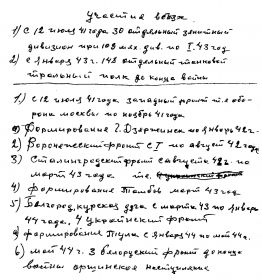 участие в войне.
1) С 12 июля 41 года 30 отдельный зенитный
дивизион при 108 мяс див. по I. 43 год
2) с января 43 г. 148 отдельный танковой
полк до конца войны
1) с 12 июля 41 года западный фронт т.е обо-
рона москвы по ноябрь 41 года
Формирование г. Дзержинск по январь 42 г.
2) Воронежский фронт с I по август 42 года
3) Сталинградский фронт с августа 42 г. по
март 43 года
4) формирование Тамбов март 43 год
5) Белгород, курская дуга с марта 43 по январь
44 года. 4 украинский фронт
формирование Тула с января 44 по май 44 г.
6) май 44 г. 3 белорусский фронт до конца
войны оршинское наступление